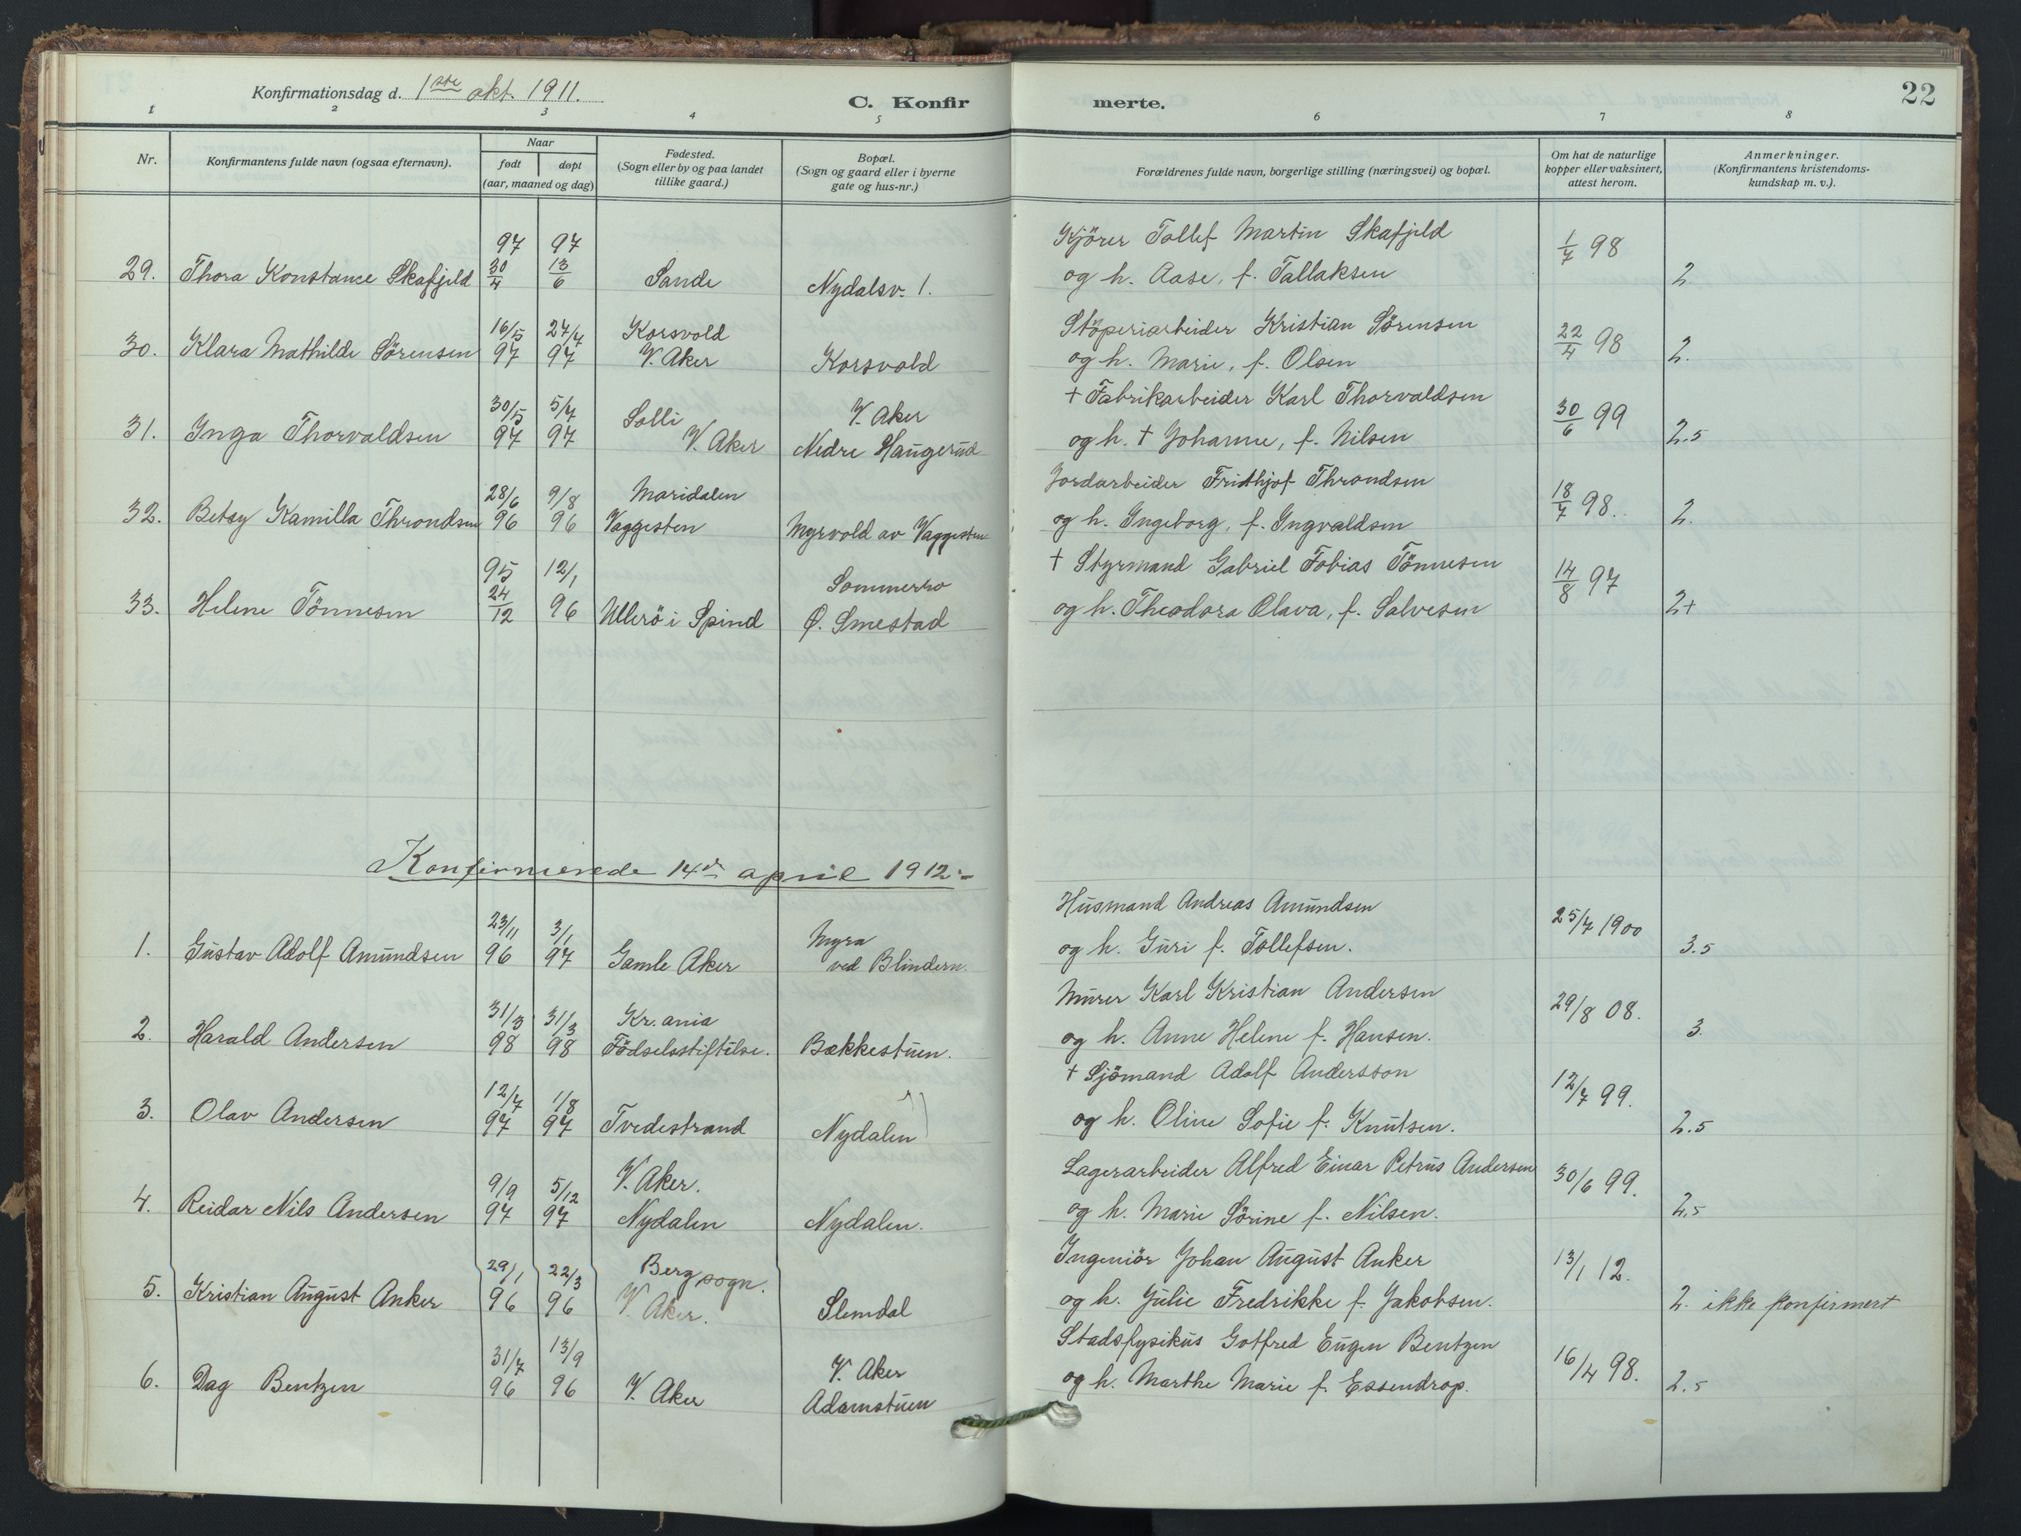 Konfirmationsdag d. 1ste okt. 1911.
C. Konfirmerte.
22
1 2 3 4 5 6 7 8
Nr.
Konfirmantens fulde navn (ogsaa efternavn).
Naar
født døpt
(aar, maaned og dag)
Fødested.
(Sogn eller by og paa landet
tillike gaard.)
Bopæl.
(Sogn og gaard eller i byerne
gate og hus-nr.)
Forældrenes fulde navn, borgerlige stilling (næringsvei) og bopæl.
Om hat de naturlige
kopper eller vaksinert,
attest herom.
Anmerkninger.
(Konfirmantens kristendoms-
kundskap m. v.).
97 97 Kjörer Tollef Martin Skafjeld 1/7 98
29. Thora Konstance Skafjeld 30/4 13/6 Sande Nydalsv. 1. og h. Aase, f. Tallaksen 2.
16/5 24/7 Korsvold Stöperiarbeider Kristian Sørensen 22/4 98
30. Klara Mathilde Sørensen 97 97 V. Aker Korsvold og h. Marie, f. Olsen 2.
30/5 5/7 Solli V. Aker + Fabrikarbeider Karl Thorvaldsen 30/6 99
31. Inga Thorvaldsen 97 97 V. Aker Nedre Haugerud og h. + Johanne, f. Nilsen 2.5
28/6 9/8 Maridalen Jordarbeider Fridthjof Throndsen 18/7 98.
32. Betsy Kamilla Throndsen 96 96 Vaggesten Myrvold av Vaggesten og h. Ingeborg, f. Ingvaldsen 2.
95 12/1 Sommerro + Styrmand Gabriel Tobias Tönnesen 14/8 97
33. Helene Tönnesen 24/12 96 Ullerö i Spind Ø. Smestad og h. Theodora Olava, f. Salvesen 2+
Konfirmerede 14de april 1912.
23/11 3/1 Myra Husmand Andreas Amundsen 25/7 1900
1. Gustav Adolf Amundsen 96 97 Gamle Aker ved Blindern. og h. Guri f. Tollefsen. 3.5
31/3 31/3 Kr.ania Murer Karl Kristian Andersen 29/8 08.
2. Harald Andersen 98 98 Födselsstiftelse. Bækkestuen. og h. Anne Helene f. Hansen. 3.
12/7 1/8 + Sjömand Adolf Andersson 12/7 99.
3. Olav Andersen 97 97 Tvedestrand Nydalen og h. Oline Sofie f. Knutsen. 2.5
9/9 5/12 V. Aker. Lagerarbeider Alfred Einar Petrus Andersen 30/6 99.
4. Reidar Nils Andersen 97 97 Nydalen Nydalen. og h. Marie Sörine f. Nilsen. 2.5
29/1 22/3 Berg sogn. Ingeniör Johan August Anker 13/1 12.
5. Kristian August Anker 96 96 V. Aker. Slemdal og h. Julie Fredrikke f. Jakobsen. 2. ikke konfirmert
31/7 13/9 V. Aker Stadsfysikus Gotfred Eugen Bentzen 16/4 98.
6. Dag Bentzen 96 96 V. Aker Adamstuen og h. Marthe Marie f. Essendrop. 2.5